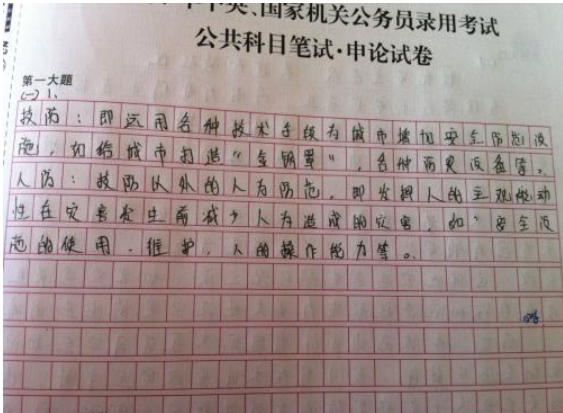 中央、国家机关公务员录用考试
公共科目笔试·申论试卷
第一大题
(一) 1、
技防：即运用各种技术手段为城市增加安全防范设
施，如给城市打造“金钢罩”，各种消灾设备等。
人防：技防以外的人为防范，即发挥人的主观能动
性在灾害发生前减少人为造成的灾害，如：安全设
施的使用、维护，人的操作能力等。